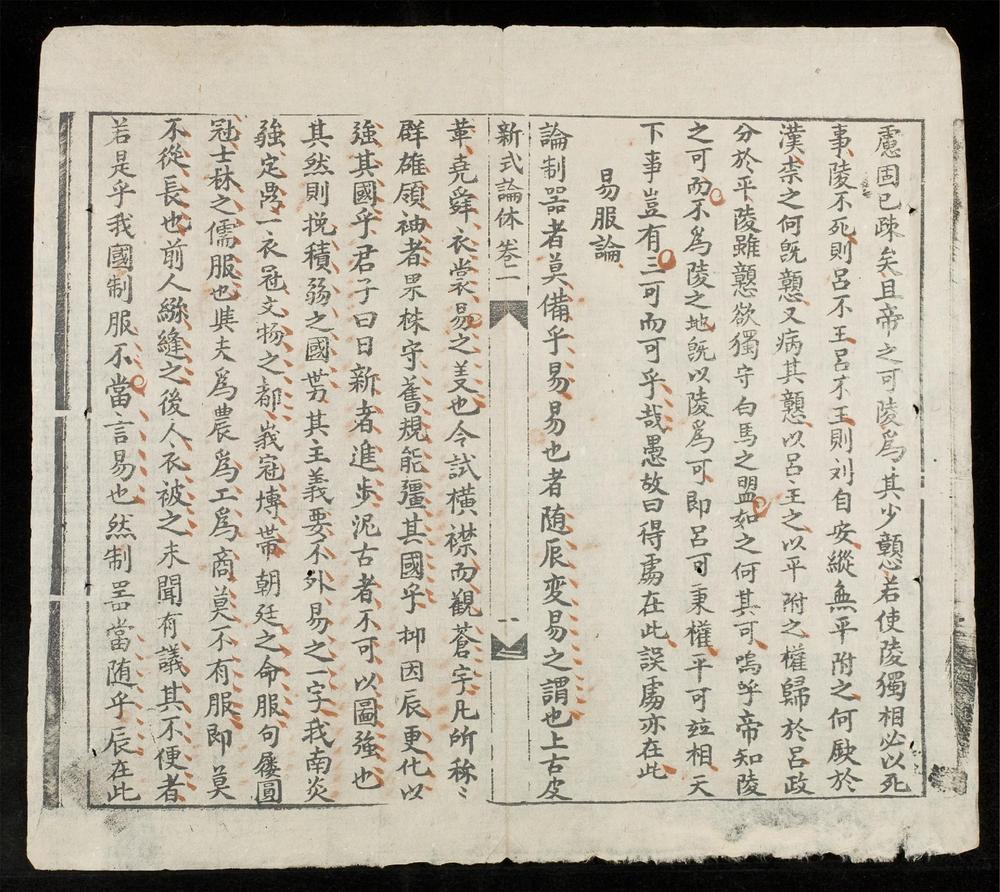 慮固已疎矣且帝之可陵爲其少戇若使陵獨相必以死
事陵不死則呂不王呂不王則刘自安縱無平附之何厥於
漢柰之何既戇又病其戇以呂王之以平附之權歸於呂政
分於平陵雖戇欲獨守白馬之盟如之何其可嗚呼帝知陵
之可而不爲陵之地既以陵爲可即呂可秉權平可並相天
下事豈有三可而可乎哉愚故曰得䖏在此誤䖏亦在此
易服論
論制器者莫備乎易易也者随辰変易之謂也上古皮
新式論体卷二
革堯舜衣裳易之美也今試橫襟而觀蒼宇凡所稱〻
群雄領袖者果株守舊規能彊其國乎抑因辰更化以
強其國乎君子曰日新者進步泥古者不可以圖強也
其然則挽積弱之國势其主義要不外易之一字我南炎
強定界一衣冠文物之都峩冠博帶朝廷之命服句屨圓
冠士林之儒服也與夫爲農爲工爲商莫不有服即莫
不從長也前人縧縫之後人衣被之未聞有議其不便者
若是乎我國制服不當言易也然制噐當随乎辰在此